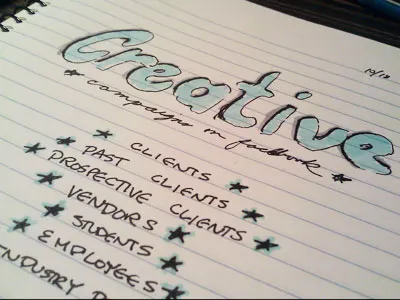 10/12
Creative
★ campaigns on facebook ★
★ CLIENTS ★
★ PAST CLIENTS ★
★ PROSPECTIVE CLIENTS ★
★ VENDORS ★
★ STUDENTS ★
★ EMPLOYEES ★
INDUSTRY